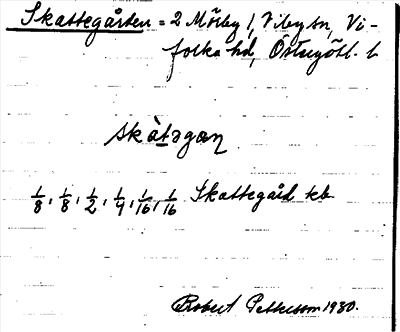 Skattegården = 2 Mörby 1, Viby sn, Vi-
folka hd, Östergötl. l
skàtəgan
1/8, 1/8, 1/2, 1/4, 1/16, 1/16 Skattegård kb
Robert Pettersson 1930.